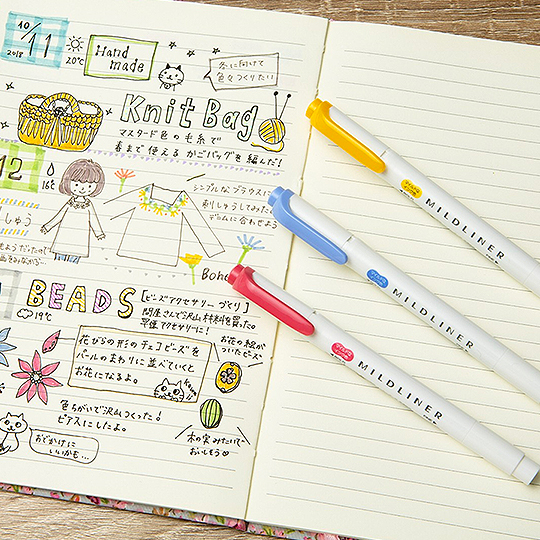 10/11
2018
20℃
Hand made
冬に向けて
色々つくりたい
Knit Bag
マスタード色の毛糸で
春まで使える かごバッグを編んだ!
12
16℃
しゅう
シンプルなブラウスに
刺しゅうしてみた
デニムに合わせよう
BEADS
[ビーズアクセサリーづくり]
19℃
問屋さんで沢山材料を買った。
早速アクセサリーに!
花びらの形のチェコビーズを
パールのまわりに並べていくと
お花になるよ。
お花の絵が
ついたビーズ
色ちがいで沢山つくった!
ピアスにしたよ。
おでかけに
いいかも…
木の実みたいで
おいしそう
MILDLINER
MILDLINER
MILDLINER